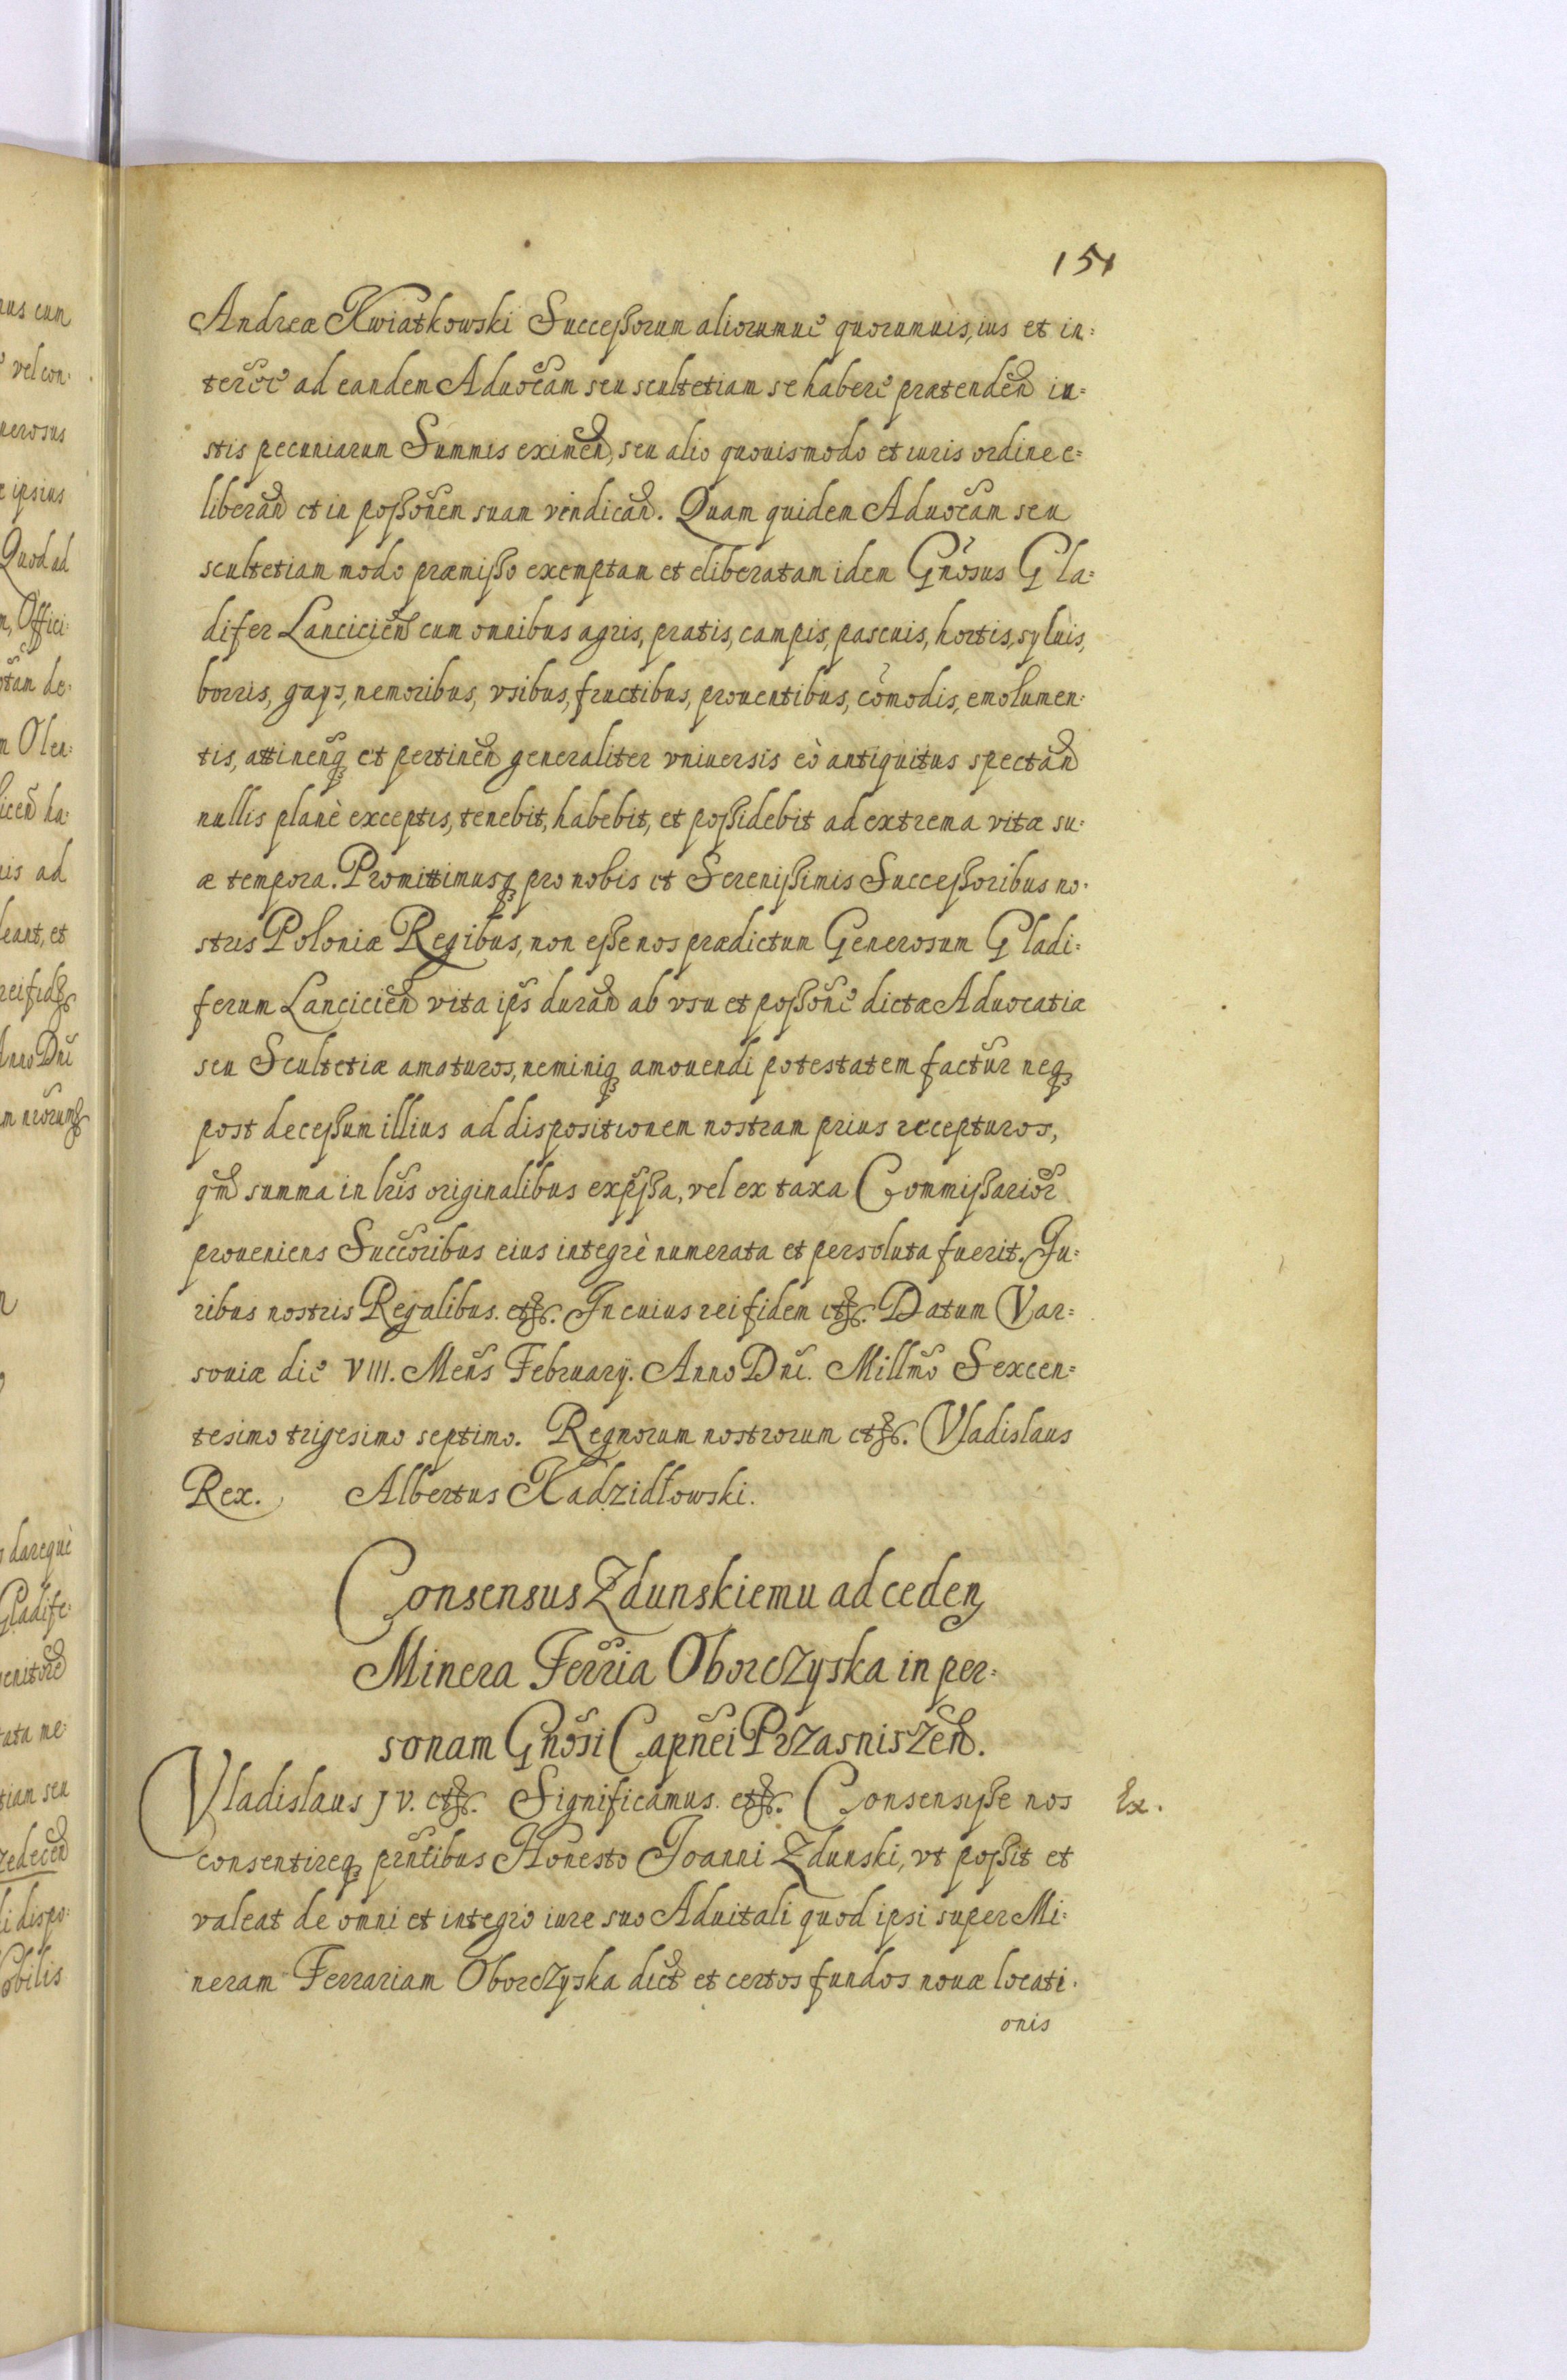 151
Andreæ Kwiatkowski Successorum aliorumue quorumuis, ius et in=
terẽe ad eandem Aduocãm seu scultetiam se habere prætendeñ iu=
stis pecuniarum Summis eximeñ, seu alio quouismodo et iuris ordine e=
liberañ et in possoñem suam vendicañ. Quam quidem Aduocãm seu
scultetiam modo præmisso exemptam et eliberatam idem Gñosus Gla=
difer Lancicieñ cum omnibus agris, pratis, campis, pascuis, hortis, syluis,
borris, gays, nemoribus, vsibus, fructibus, prouentibus, cõmodis, emolumen=
tis, attineñq et pertineñ generaliter vniuersis eò antiquitus spectañ
nullis planè exceptis, tenebit, habebit, et possidebit ad extrema vitæ su=
æ tempora. Promittimusq pro nobis et Serenissimis Successoribus no=
stris Poloniæ Regibus, non esse nos prædictum Generosum Gladi=
ferum Lancicieñ vita ips̃ durañ ab vsu et possoñe dictæ Aduocatiæ
seu Scultetiæ amoturos, neminiq amouendi potestatem factũr neq
post decessum illius ad dispositionem nostram prius recepturos,
qm̃ summa in lr̃is originalibus exp̃ssa, vel ex taxa Commissariõr
proueniens Succõribus eius integrè numerata et persoluta fuerit. Iu=
ribus nostris Regalibus. etc. In cuius rei fidem etc. Datum Var=
souiæ die VIII. Meñs February. Anno Dñi. Millm̃o Sexcen=
tesimo trigesimo septimo. Regnorum nostrorum etc. Vladislaus
Rex. Albertus Kadzidłowski.
Consensus Zdunskiemu ad ceden
Minera Ferr̃ia Oborczyska in per=
sonam Gñosi Capñei Przasniszeñ.
Vladislaus IV. etc. Significamus. etc. Consensisse nos
Ex.
consentireq pr̃ntibus Honesto Joanni Zdunski, vt possit et
valeat de omni et integro iure suo Aduitali quod ipsi super Mi=
neram Ferrariam Oborczyska dict̃ et certos fundos nouæ locati=
onis